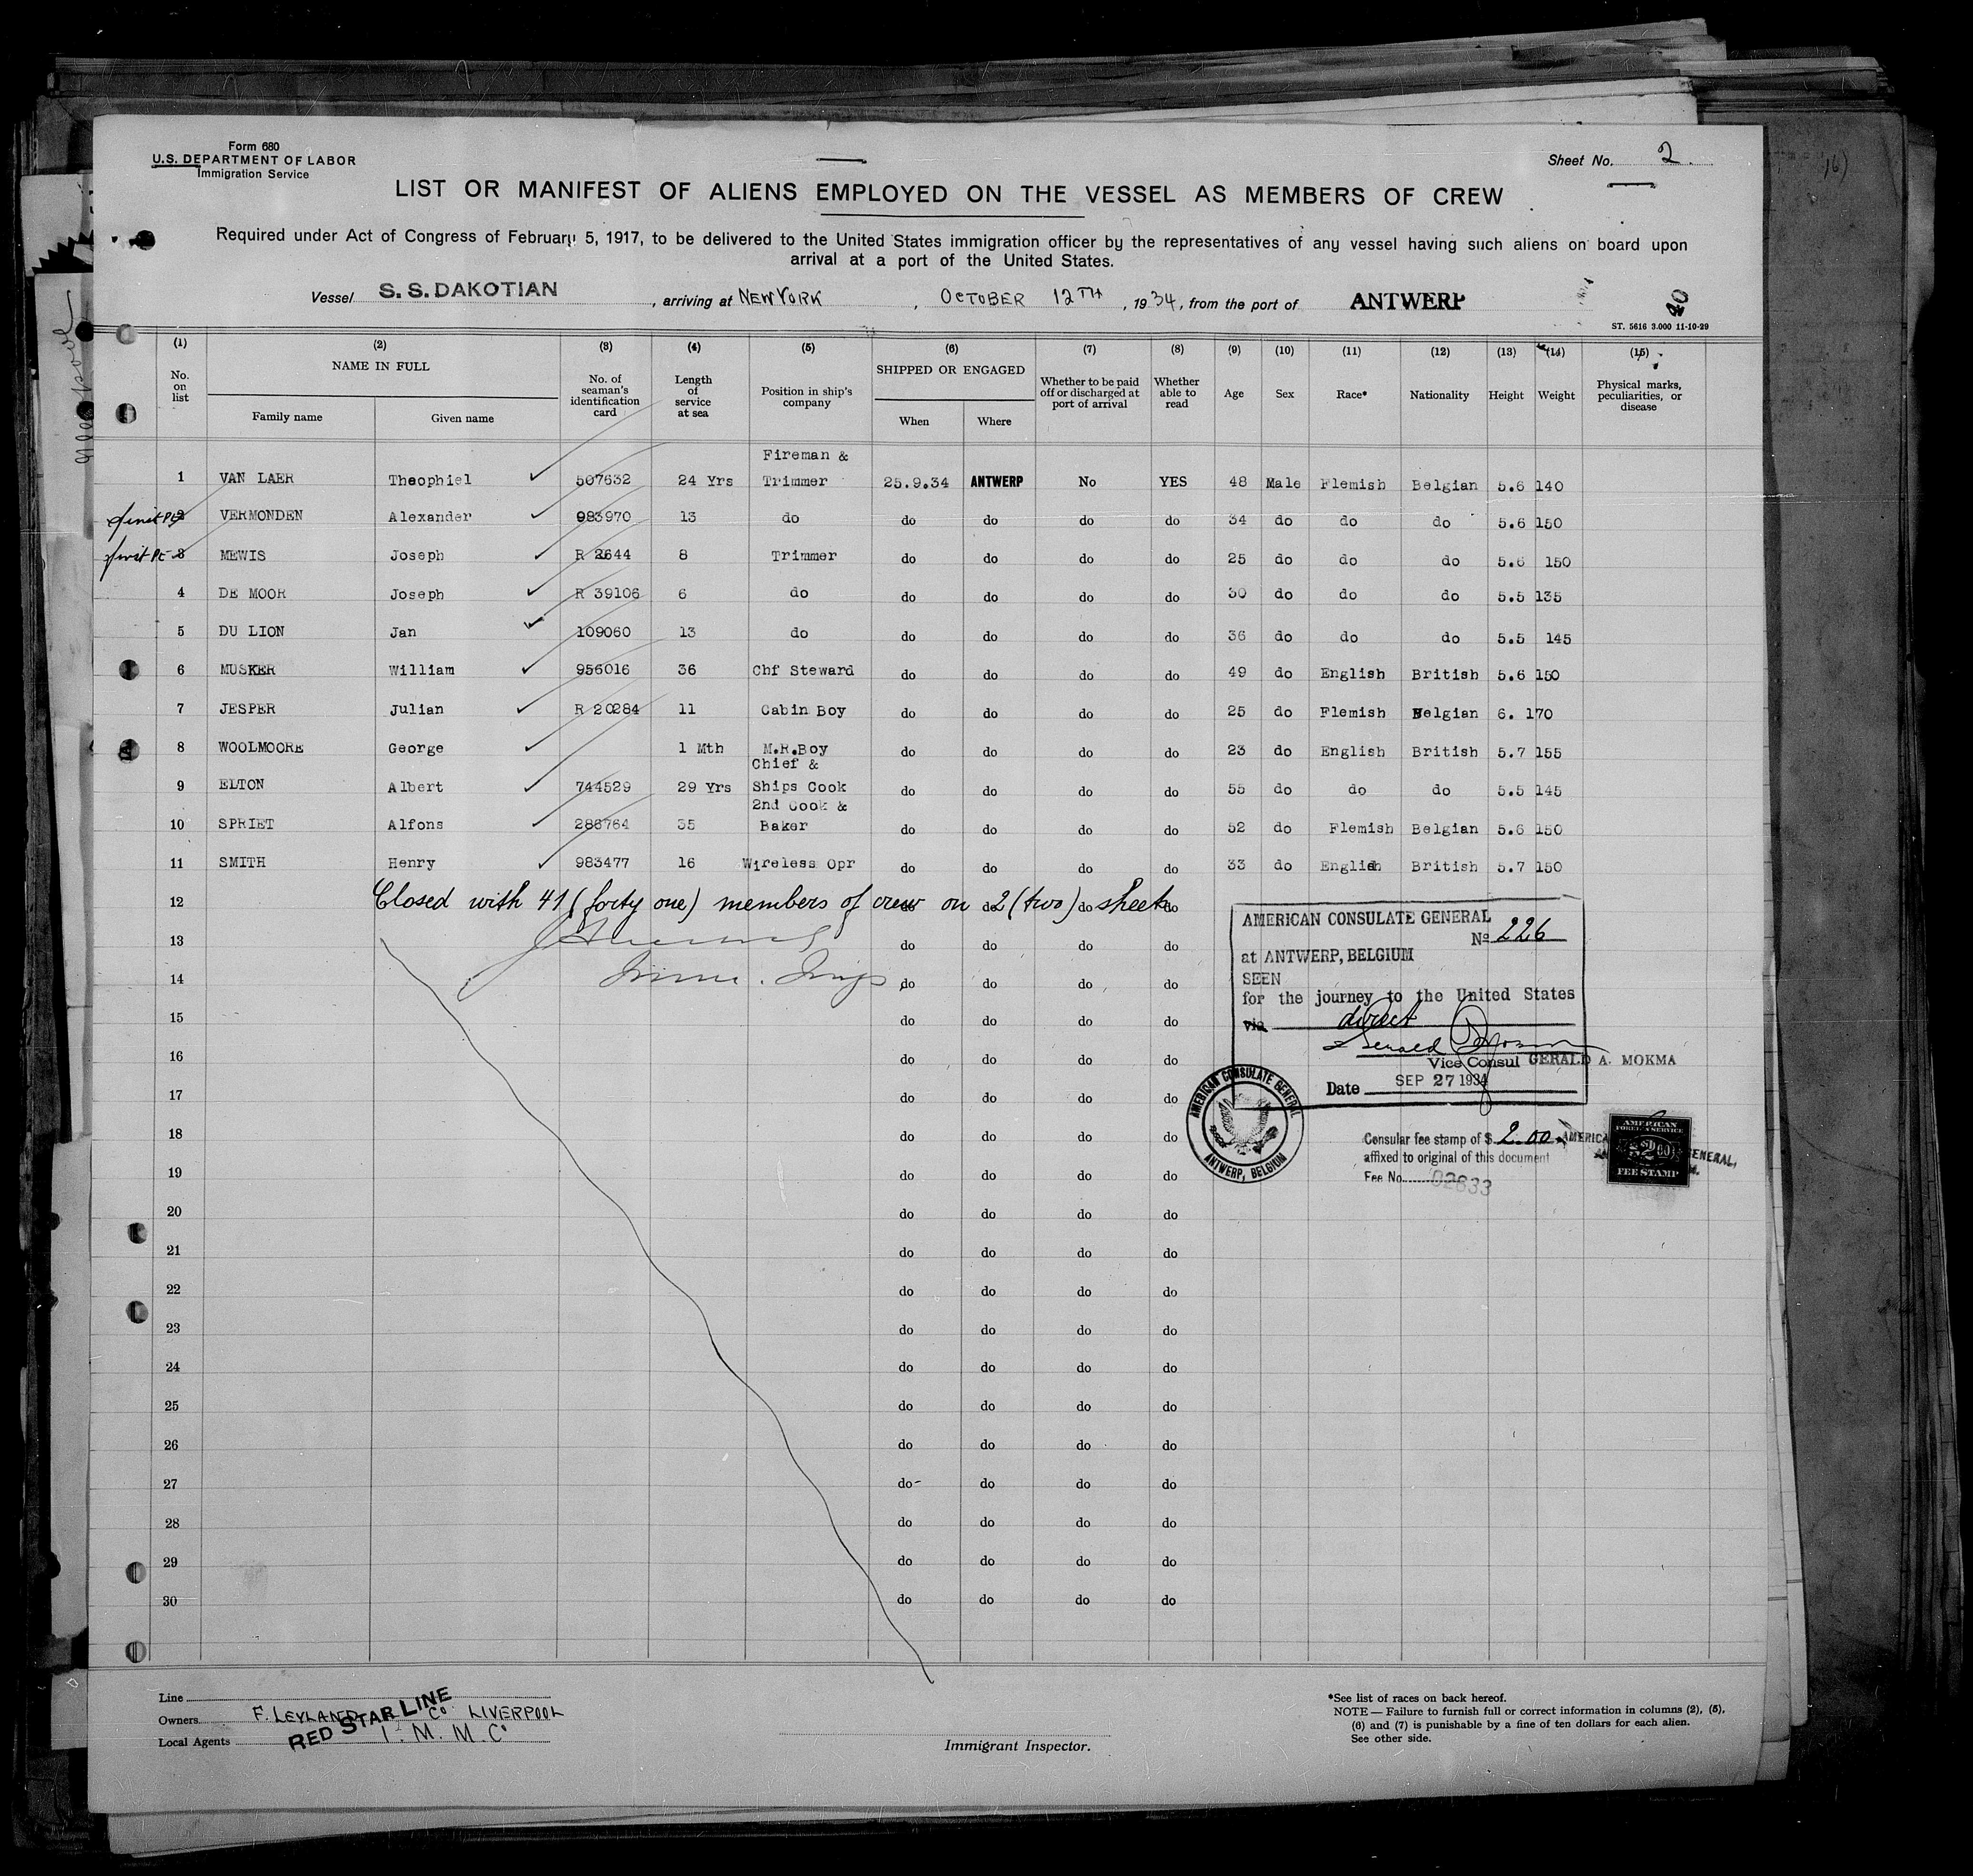 Form 680
U.S. DEPARTMENT OF LABOR
Immigration Service
Sheet No. 2.
LIST OR MANIFEST OF ALIENS EMPLOYED ON THE VESSEL AS MEMBERS OF CREW
Required under Act of Congress of February 5, 1917, to be delivered to the United States immigration officer by the representatives of any vessel having such aliens on board upon
arrival at a port of the United States.
Vessel S. S. DAKOTIAN, arriving at NEW YORK, OCTOBER 12TH, 1934, from the port of ANTWERP
40
ST. 5616 3.000 11-10-29
(1) (2) (3) (4) (5) (6) (7) (8) (9) (10) (11) (12) (13) (14) (15)
No. on list NAME IN FULL Family name Given name No. of seaman's identification card Length of service at sea Position in ship's company SHIPPED OR ENGAGED When Where Whether to be paid off or discharged at port of arrival Whether able to read Age Sex Race* Nationality Height Weight Physical marks, peculiarities, or disease
1 VAN LAER Theophiel 507632 24 Yrs Fireman & Trimmer 25.9.34 ANTWERP No YES 48 Male Flemish Belgian 5.6 140
2 VERMONDEN Alexander 983970 13 do do do do do 34 do do do 5.6 150
3 MEWIS Joseph R 2644 8 Trimmer do do do do 25 do do do 5.6 150
4 DE MOOR Joseph R 39106 6 do do do do do 30 do do do 5.5 135
5 DU LION Jan 109060 13 do do do do do 36 do do do 5.5 145
6 MUSKER William 956016 36 Chf Steward do do do do 49 do English British 5.6 150
7 JESPER Julian R 20284 11 Cabin Boy do do do do 25 do Flemish Belgian 6. 170
8 WOOLMOORE George 1 Mth M.R.Boy do do do do 23 do English British 5.7 155
9 ELTON Albert 744529 29 Yrs Chief & Ships Cook do do do do 55 do do do 5.5 145
10 SPRIET Alfons 286764 35 2nd Cook & Baker do do do do 52 do Flemish Belgian 5.6 150
11 SMITH Henry 983477 16 Wireless Opr do do do do 33 do English British 5.7 150
12 Closed with 41 (forty one) members of crew on 2 (two) sheets do do do do
13 do do do do
14 do do do do
15 do do do do
16 do do do do
17 do do do do
18 do do do do
19 do do do do
20 do do do do
21 do do do do
22 do do do do
23 do do do do
24 do do do do
25 do do do do
26 do do do do
27 do do do do
28 do do do do
29 do do do do
30 do do do do
AMERICAN CONSULATE GENERAL
No 226
at ANTWERP, BELGIUM
SEEN
for the journey to the United States
via direct
Vice Consul GERALD A. MOKMA
Date SEP 27 1934
AMERICAN CONSULATE GENERAL
ANTWERP, BELGIUM
Consular fee stamp of $ 2.00
affixed to original of this document
Fee No. 02833
AMERICAN
FOREIGN SERVICE
$2.00
FEE STAMP
GENERAL,
Line
Owners F. LEYLAND Co LIVERPOOL
RED STAR LINE
Local Agents I. M. M. Co
Immigrant Inspector.
*See list of races on back hereof.
NOTE — Failure to furnish full or correct information in columns (2), (5),
(6) and (7) is punishable by a fine of ten dollars for each alien.
See other side.